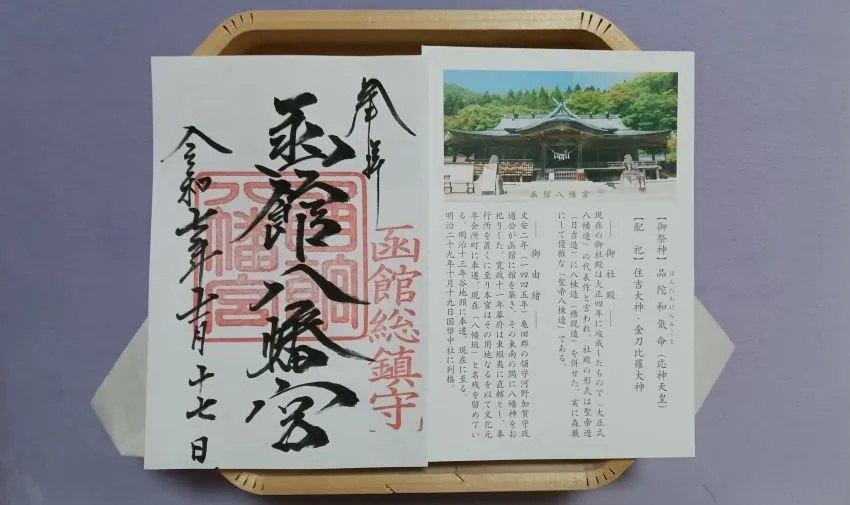 奉拝
函館総鎮守
函館八幡宮
函館八幡宮
令和七年 月十七日
函館八幡宮
ほんだわけのみこと
【御祭神】品陀和氣命(応神天皇)
【配 祀】住吉大神・金刀比羅大神
―― 御社殿 ――
現在の御社殿は大正四年に竣成したもので(大正式
八幡造)の代表作と言われ、社殿の形式は聖帝造
(日吉造)に八棟造(権現造)を併せた、実に森厳
にして優雅な「聖帝八棟造」である。
―― 御由緒 ――
文安二年(一四四五年)亀田郡の領守河野加賀守政
通公が函館に館を築き、その東南の隅に八幡神をお
祀りした。寛政十一年幕府は東蝦夷に直轄とし、奉
行所を置くに至り本宮はその用地なるを以て文化元
年会所町に奉遷、現在「八幡坂」と名残を留めてい
る。明治十三年谷地頭に奉遷、現在に至る。
明治二十九年十月十九日国幣中社に列格。